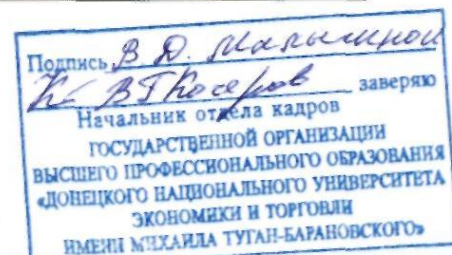 Подпись В. Д. Малыгиной
заверяю
Начальник отдела кадров
ГОСУДАРСТВЕННОЙ ОРГАНИЗАЦИИ
ВЫСШЕГО ПРОФЕССИОНАЛЬНОГО ОБРАЗОВАНИЯ
«ДОНЕЦКОГО НАЦИОНАЛЬНОГО УНИВЕРСИТЕТА
ЭКОНОМИКИ И ТОРГОВЛИ
ИМЕНИ МИХАИЛА ТУГАН-БАРАНОВСКОГО»